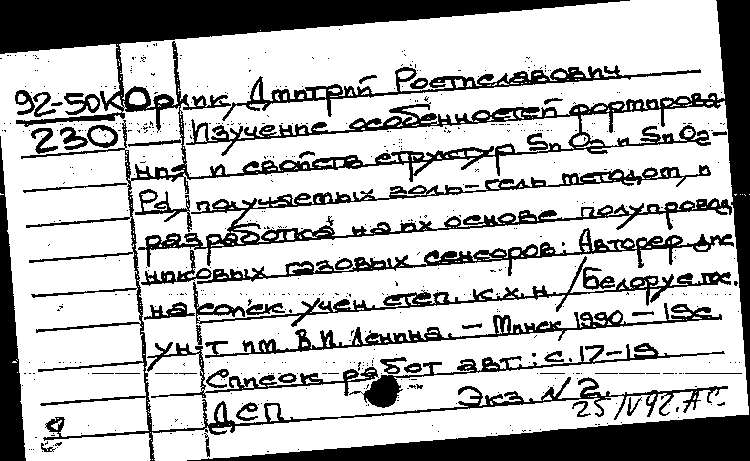 92-50К Орлик, Дмитрий Ростиславович.
230 Изучение особенностей формирова-
ния и свойств структур SnO2 и SnO2-
Pd, получаемых золь-гель методом, и
разработка на их основе полупровод-
никовых газовых сенсоров: Автореф. дис.
на соиск. учен. степ. к.х.н. / Белорус. гос.
ун-т им. В.И. Ленина. - Минск, 1990. - 19с.
Список работ авт.: с. 17-19.
ДСП. Экз. N 2.
25/IV92. АС